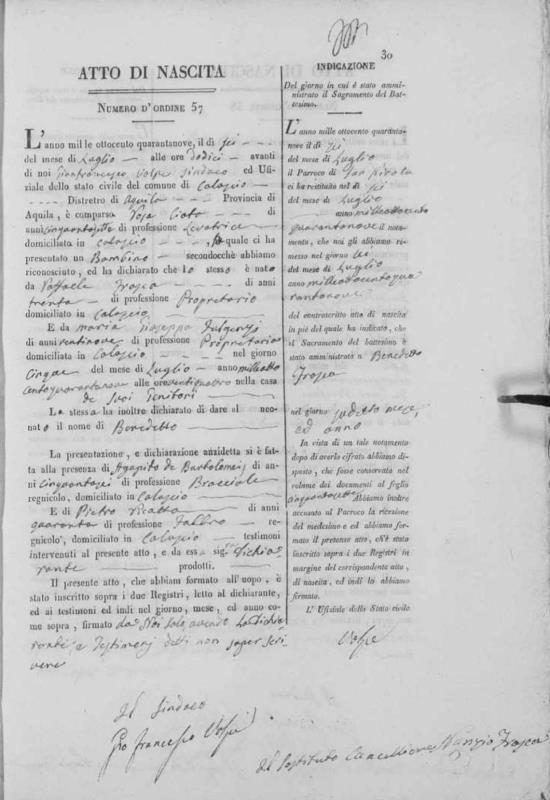 30
ATTO DI NASCITA
NUMERO D'ORDINE 57
L'anno mille ottocento quarantanove, il dì sei
del mese di Luglio alle ore dodici avanti
di noi Gianfrancesco Volpe Sindaco ed Uffi-
ziale dello stato civile del comune di Calascio
Distretto di Aquila Provincia di
Aquila, è comparsa di
anni cinquantasette di professione Levatrice
domiciliata in Calascio quale ci ha
presentato un Bambino secondocchè abbiamo
riconosciuto, ed ha dichiarato che lo stesso è nato
da Raffaele Frasca di anni
trenta di professione Proprietario
domiciliato in Calascio
E da Maria Giuseppa Fulgenzj
anni ventinove di professione Proprietaria
domiciliata in Calascio nel giorno
Cinque del mese di Luglio anno milleotto
cento quarantanove alle ore ventiquattro nella casa
de suoi Genitori
La stessa ha inoltre dichiarato di dare al neo-
nato il nome di Benedetto
La presentazione, e dichiarazione anzidetta si è fat-
ta alla presenza di Agapito de Bartolomeis di an-
ni cinquantasei di professione Bracciale
regnicolo, domiciliato in Calascio
E di Pietro di anni
quaranta di professione Fabbro re-
gnicolo, domiciliato in Calascio testimoni
intervenuti al presente atto, e da essa sig.ra Dichia
rante prodotti.
Il presente atto, che abbiam formato all'uopo, è
stato inscritto sopra i due Registri, letto al dichiarante,
ed ai testimoni ed indi nel giorno, mese, ed anno co-
me sopra, firmato da Noi solo, avendo la Dichia
rante, e Testimonj detti non saper scri-
vere
Il Sindaco
Gio Francesco Volpe
INDICAZIONE
Del giorno in cui è stato ammi-
nistrato il Sagramento del Bat-
tesimo.
L'anno mille ottocento quaranta-
nove il dì sei
del mese di Luglio
il Parroco di San Nicola
ci ha restituito nel dì sei
del mese di Luglio
anno milleottocento
quarantanove il nota-
mento, che noi gli abbiamo ri-
messo nel giorno sei
del mese di Luglio
anno milleottocentoqua
rantanove
del contrascritto atto di nascita
in piè del quale ha indicato, che
il Sacramento del battesimo è
stato amministrato a Benedetto
Frasca
nel giorno suddetto mese,
ed anno
In vista di un tale notamento
dopo di averlo cifrato abbiamo di-
sposto, che fosse conservato nel
volume dei documenti al foglio
cinquantasette Abbiamo inoltre
accusato al Parroco la ricezione
del medesimo e ed abbiamo for-
mato il presente atto, ch'è stato
inscritto sopra i due Registri in
margine del corrispondente atto,
di nascita, ed indi lo abbiamo
firmato.
L' Ufiziale dello Stato civile
Volpe
Il Sostituto Cancelliere Nunzio Frasca